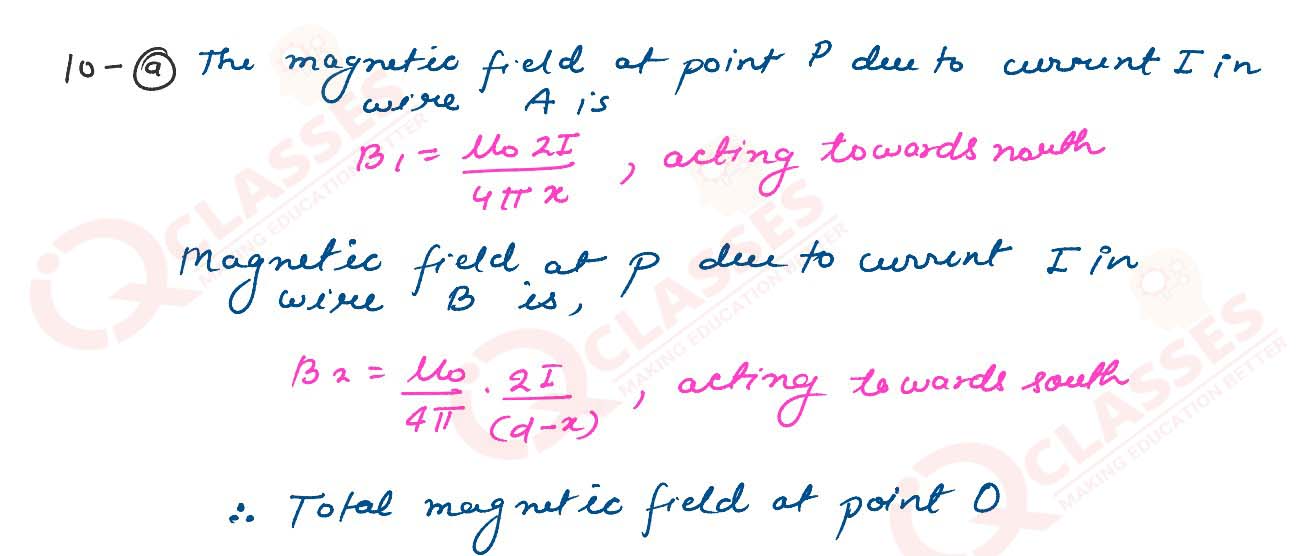 10-(a) The magnetic field at point P due to current I in
wire A is
B₁ = μ₀ 2I / 4π x , acting towards north
Magnetic field at P due to current I in
wire B is,
B₂ = μ₀/4π . 2I/(d-x) , acting towards south
∴ Total magnetic field at point O
IQ CLASSES
MAKING EDUCATION BETTER
IQ CLASSES
MAKING EDUCATION BETTER
IQ CLASSES
MAKING EDUCATION BETTER